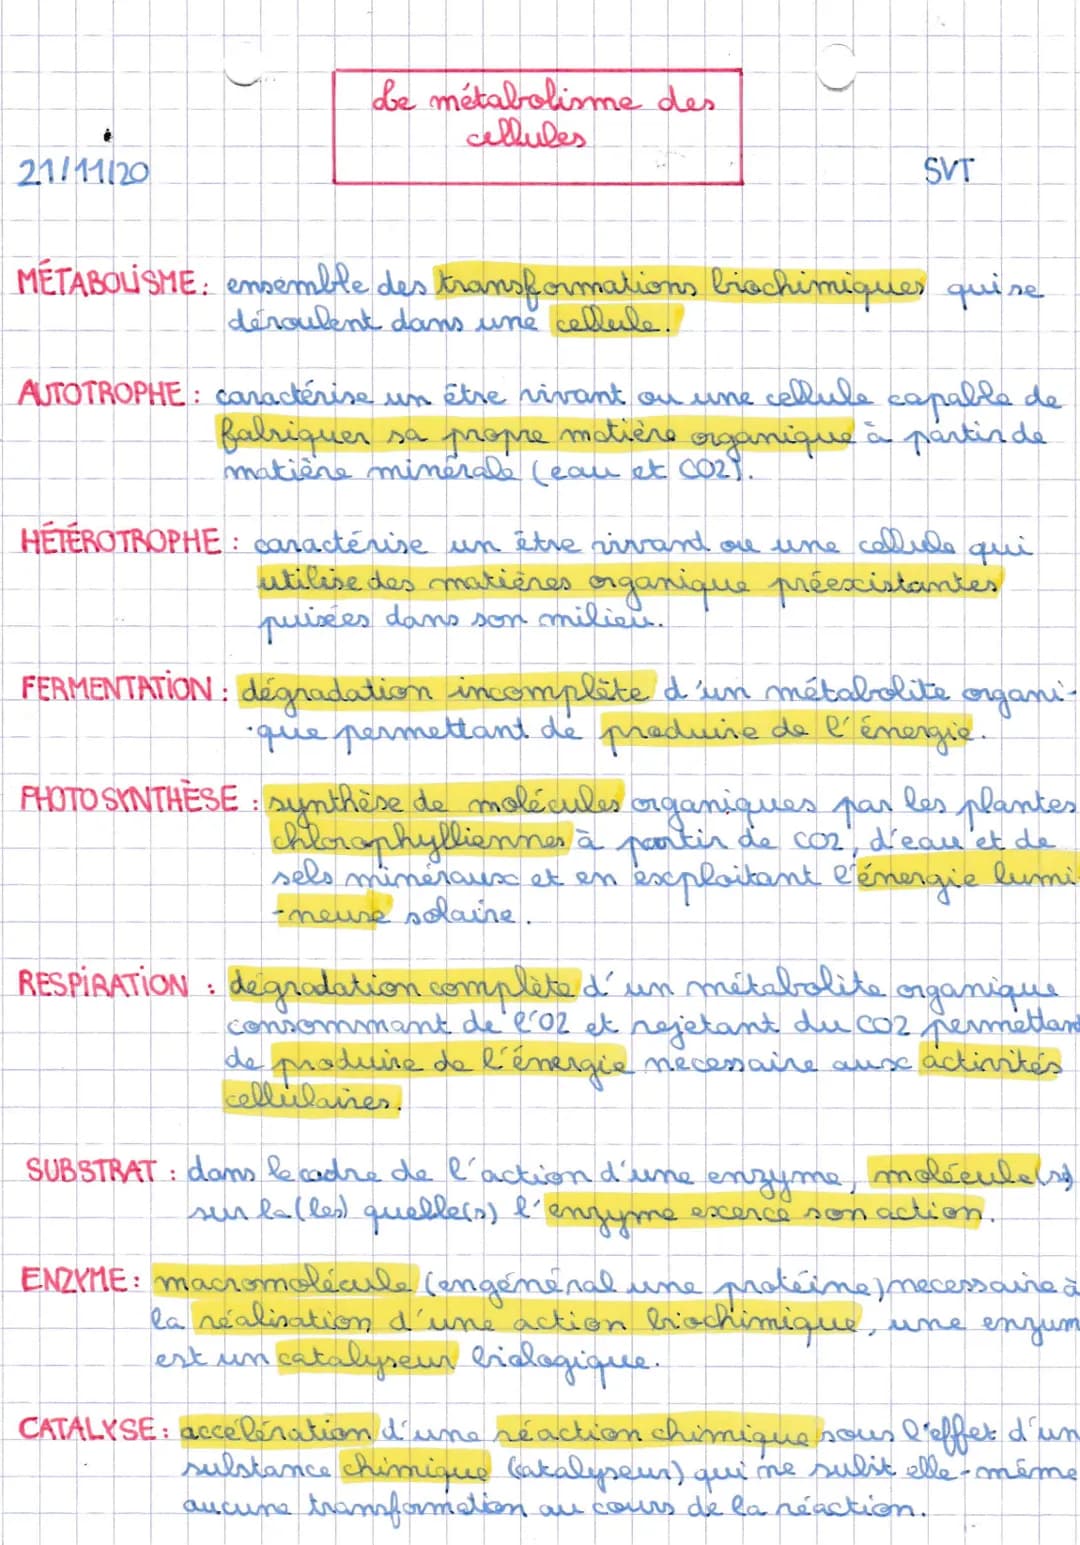 Le métabolisme des
cellules
21/11/20
SVT
MÉTABOLISME : ensemble des transformations biochimiques qui se
déroulent dans une cellule.
AUTOTROPHE : caractérise un être vivant ou une cellule capable de
fabriquer sa propre matière organique à partir de
matière minérale (eau et CO2).
HÉTÉROTROPHE : caractérise un être vivant ou une cellule qui
utilise des matières organique préexistantes
puisées dans son milieu.
FERMENTATION : dégradation incomplète d'un métabolite organi-
-que permettant de produire de l'énergie.
PHOTOSYNTHÈSE : synthèse de molécules organiques par les plantes
chlorophylliennes à partir de CO2, d'eau et de
sels minéraux et en exploitant l'énergie lumi-
-neuse solaire.
RESPIRATION : dégradation complète d'un métabolite organique
consommant de l'O2 et rejetant du CO2 permettant
de produire de l'énergie necessaire aux activités
cellulaires.
SUBSTRAT : dans le cadre de l'action d'une enzyme, molécule(s)
sur la (les) quelle(s) l'enzyme excerce son action.
ENZYME : macromolécule (en général une protéine) necessaire à
la réalisation d'une action biochimique, une enzym
est un catalyseur biologique.
CATALYSE : accélération d'une réaction chimique sous l'effet d'un
substance chimique (catalyseur) qui ne subit elle-même
aucune transformation au cours de la réaction.